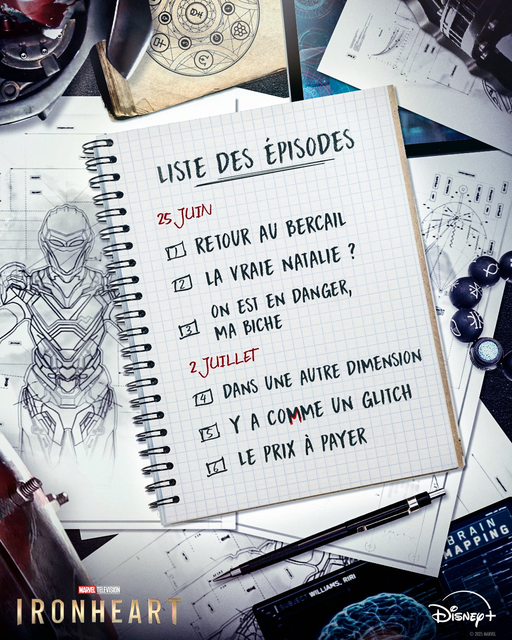 LISTE DES ÉPISODES
25 JUIN
1 RETOUR AU BERCAIL
2 LA VRAIE NATALIE ?
3 ON EST EN DANGER,
MA BICHE
2 JUILLET
4 DANS UNE AUTRE DIMENSION
5 Y A COMME UN GLITCH
6 LE PRIX À PAYER
BRAIN
MAPPING
SUBJECT WILLIAMS, RIRI
MARVEL TELEVISION
IRONHEART
Disney+
© 2025 MARVEL